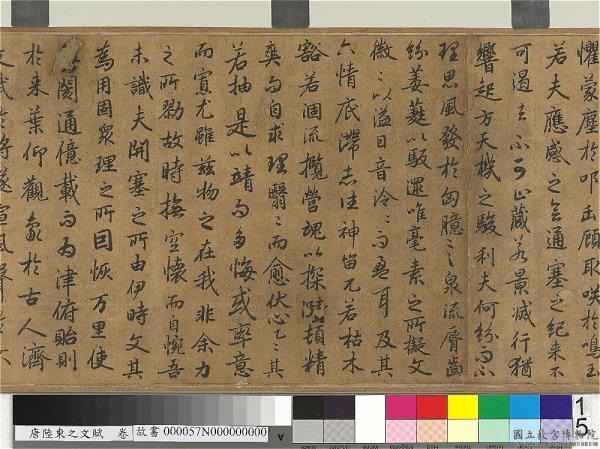 懼蒙塵於叩缶顧取咲於鳴玉
若夫應感之會通塞之紀来不
可遏去不可止藏若景滅行猶
響起方天機之駿利夫何紛而不
理思風發於匈臆言泉流脣齒
紛葳蕤以馺遝唯毫素之所擬文
徽〻以溢目音泠〻而盈耳及其
六情底滯志往神留兀若枯木
豁若涸流攬營魂以探賾頓精
爽而自求理翳〻而愈伏心乙〻其
若抽是以靖而多悔或率意
而寡尤雖兹物之在我非余力
之所勠故時撫空懷而自惋吾
未識夫開塞之所由伊時文其
為用固衆理之所因恢万里使
閡通億載而為津俯貽則
於来葉仰觀象於古人濟
文武於將墜宣風聲於不
唐陸柬之文賦 卷
故書 000057N000000000
A
15
國立故宮博物院